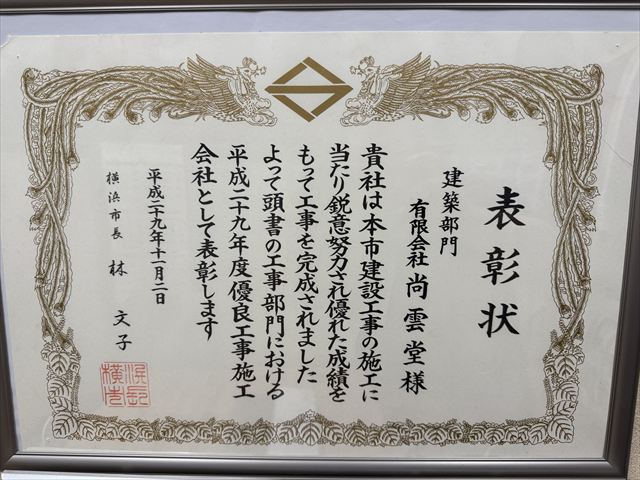 表彰状
建築部門
有限会社 尚雲堂様
貴社は本市建設工事の施工に
当たり鋭意努力され優れた成績を
もって工事を完成されました
よって頭書の工事部門における
平成二十九年度優良工事施工
会社として表彰します
平成二十九年十一月二日
横浜市長 林 文子